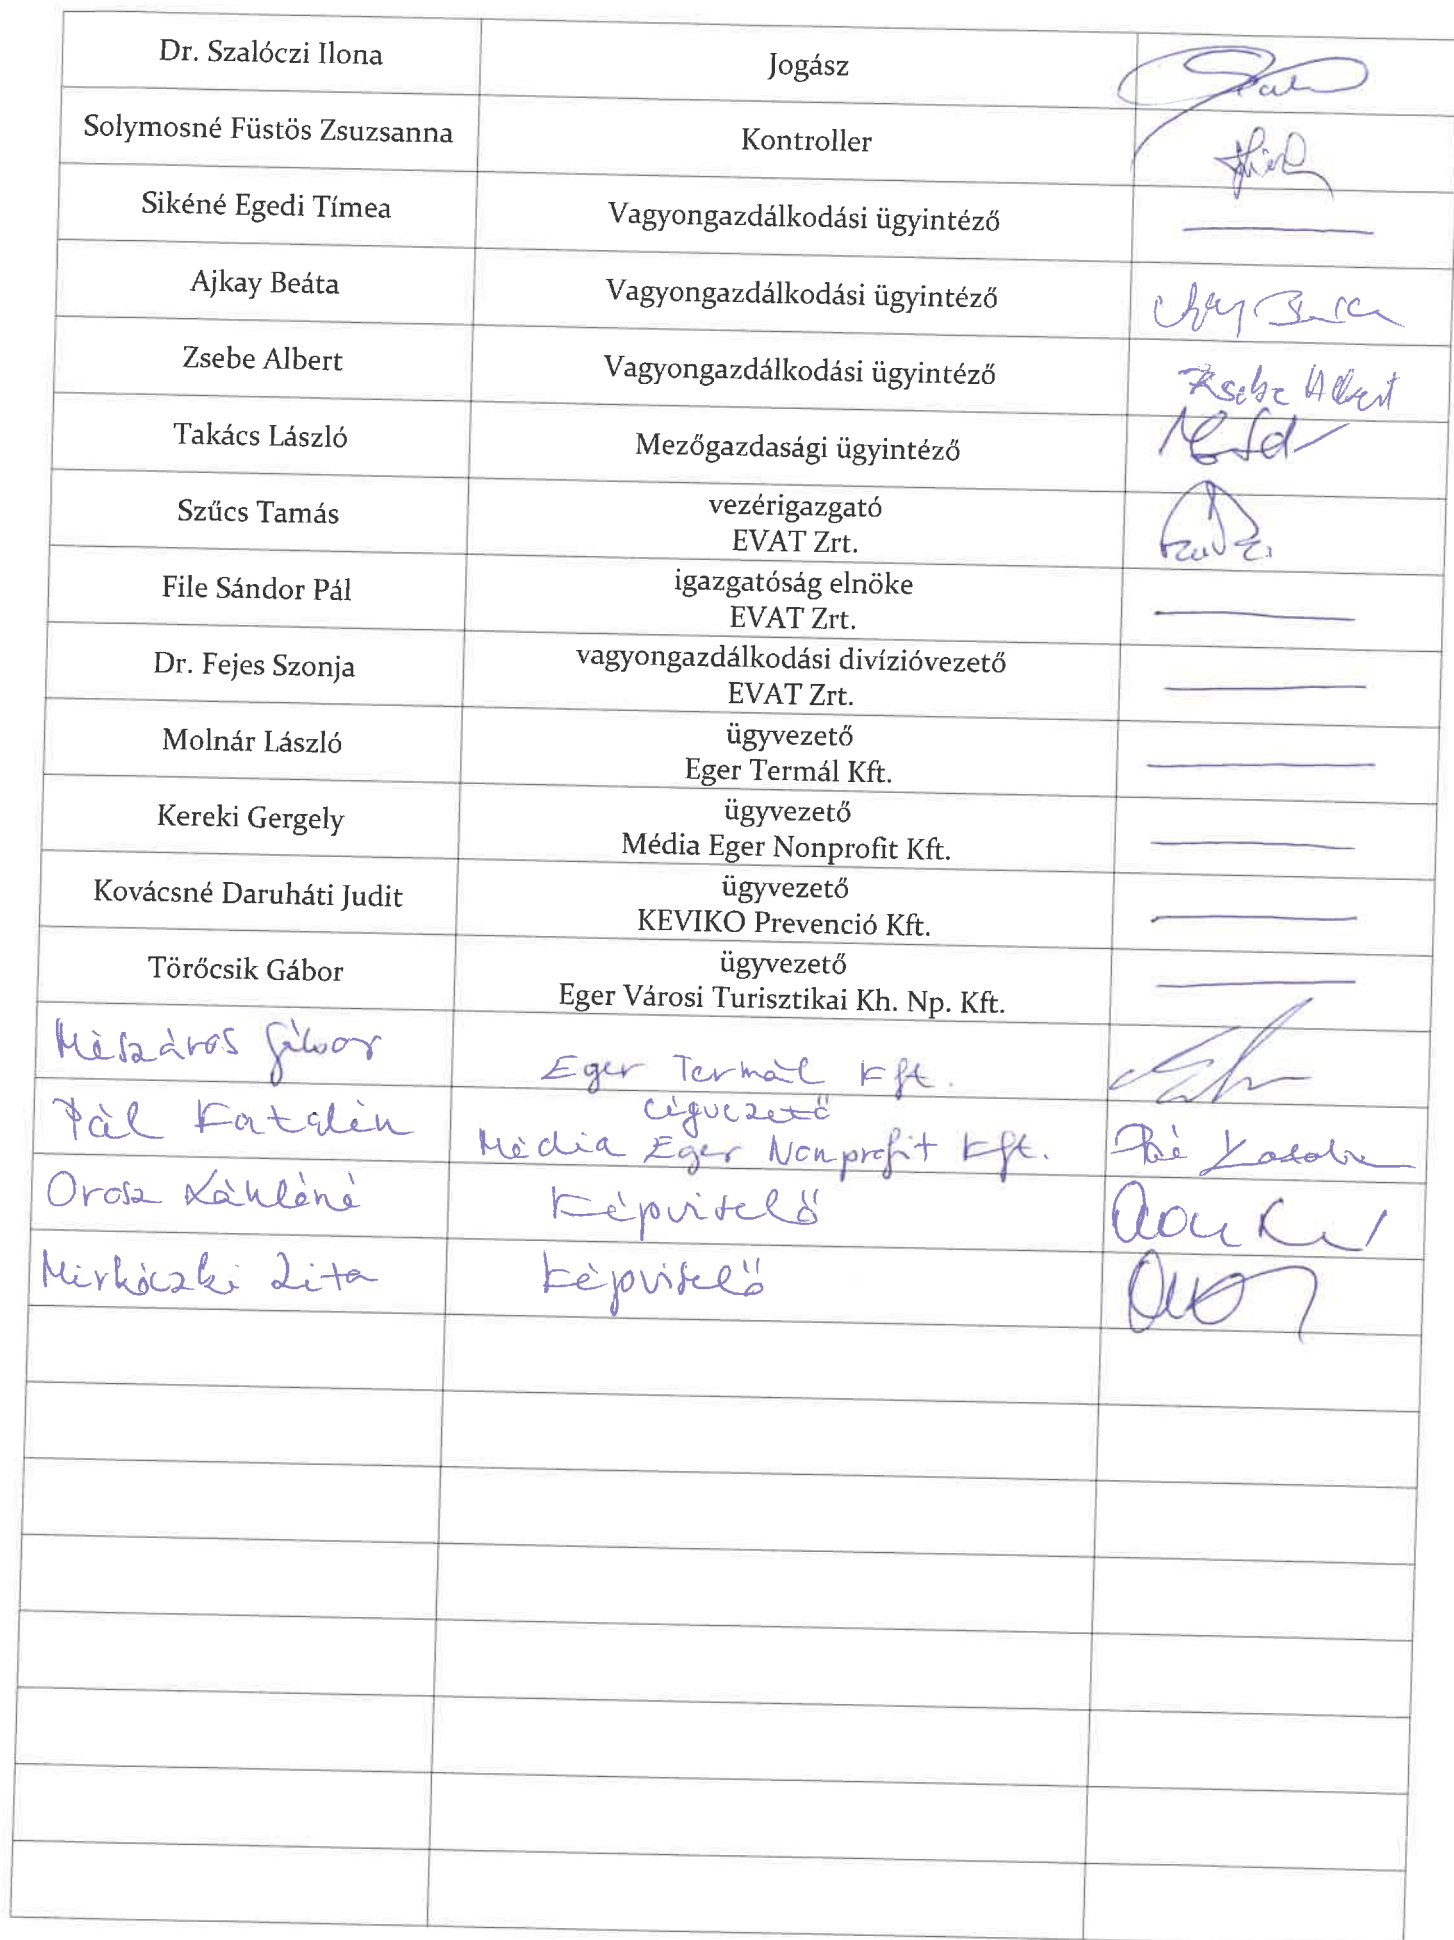 Dr. Szalóczi Ilona Jogász
Solymosné Füstös Zsuzsanna Kontroller
Sikéné Egedi Tímea Vagyongazdálkodási ügyintéző
Ajkay Beáta Vagyongazdálkodási ügyintéző
Zsebe Albert Vagyongazdálkodási ügyintéző Zsebe Albert
Takács László Mezőgazdasági ügyintéző
Szűcs Tamás vezérigazgató
EVAT Zrt.
File Sándor Pál igazgatóság elnöke
EVAT Zrt.
Dr. Fejes Szonja vagyongazdálkodási divízióvezető
EVAT Zrt.
Molnár László ügyvezető
Eger Termál Kft.
Kereki Gergely ügyvezető
Média Eger Nonprofit Kft.
Kovácsné Daruháti Judit ügyvezető
KEVIKO Prevenció Kft.
Törőcsik Gábor ügyvezető
Eger Városi Turisztikai Kh. Np. Kft.
Mészáros Gábor Eger Termál Kft.
Pál Katalin cégvezető
Média Eger Nonprofit Kft.
Orosz Képviselő
Mirkóczki Zita Képviselő